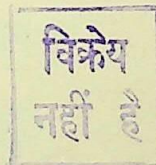 विक्रेय
नहीं है